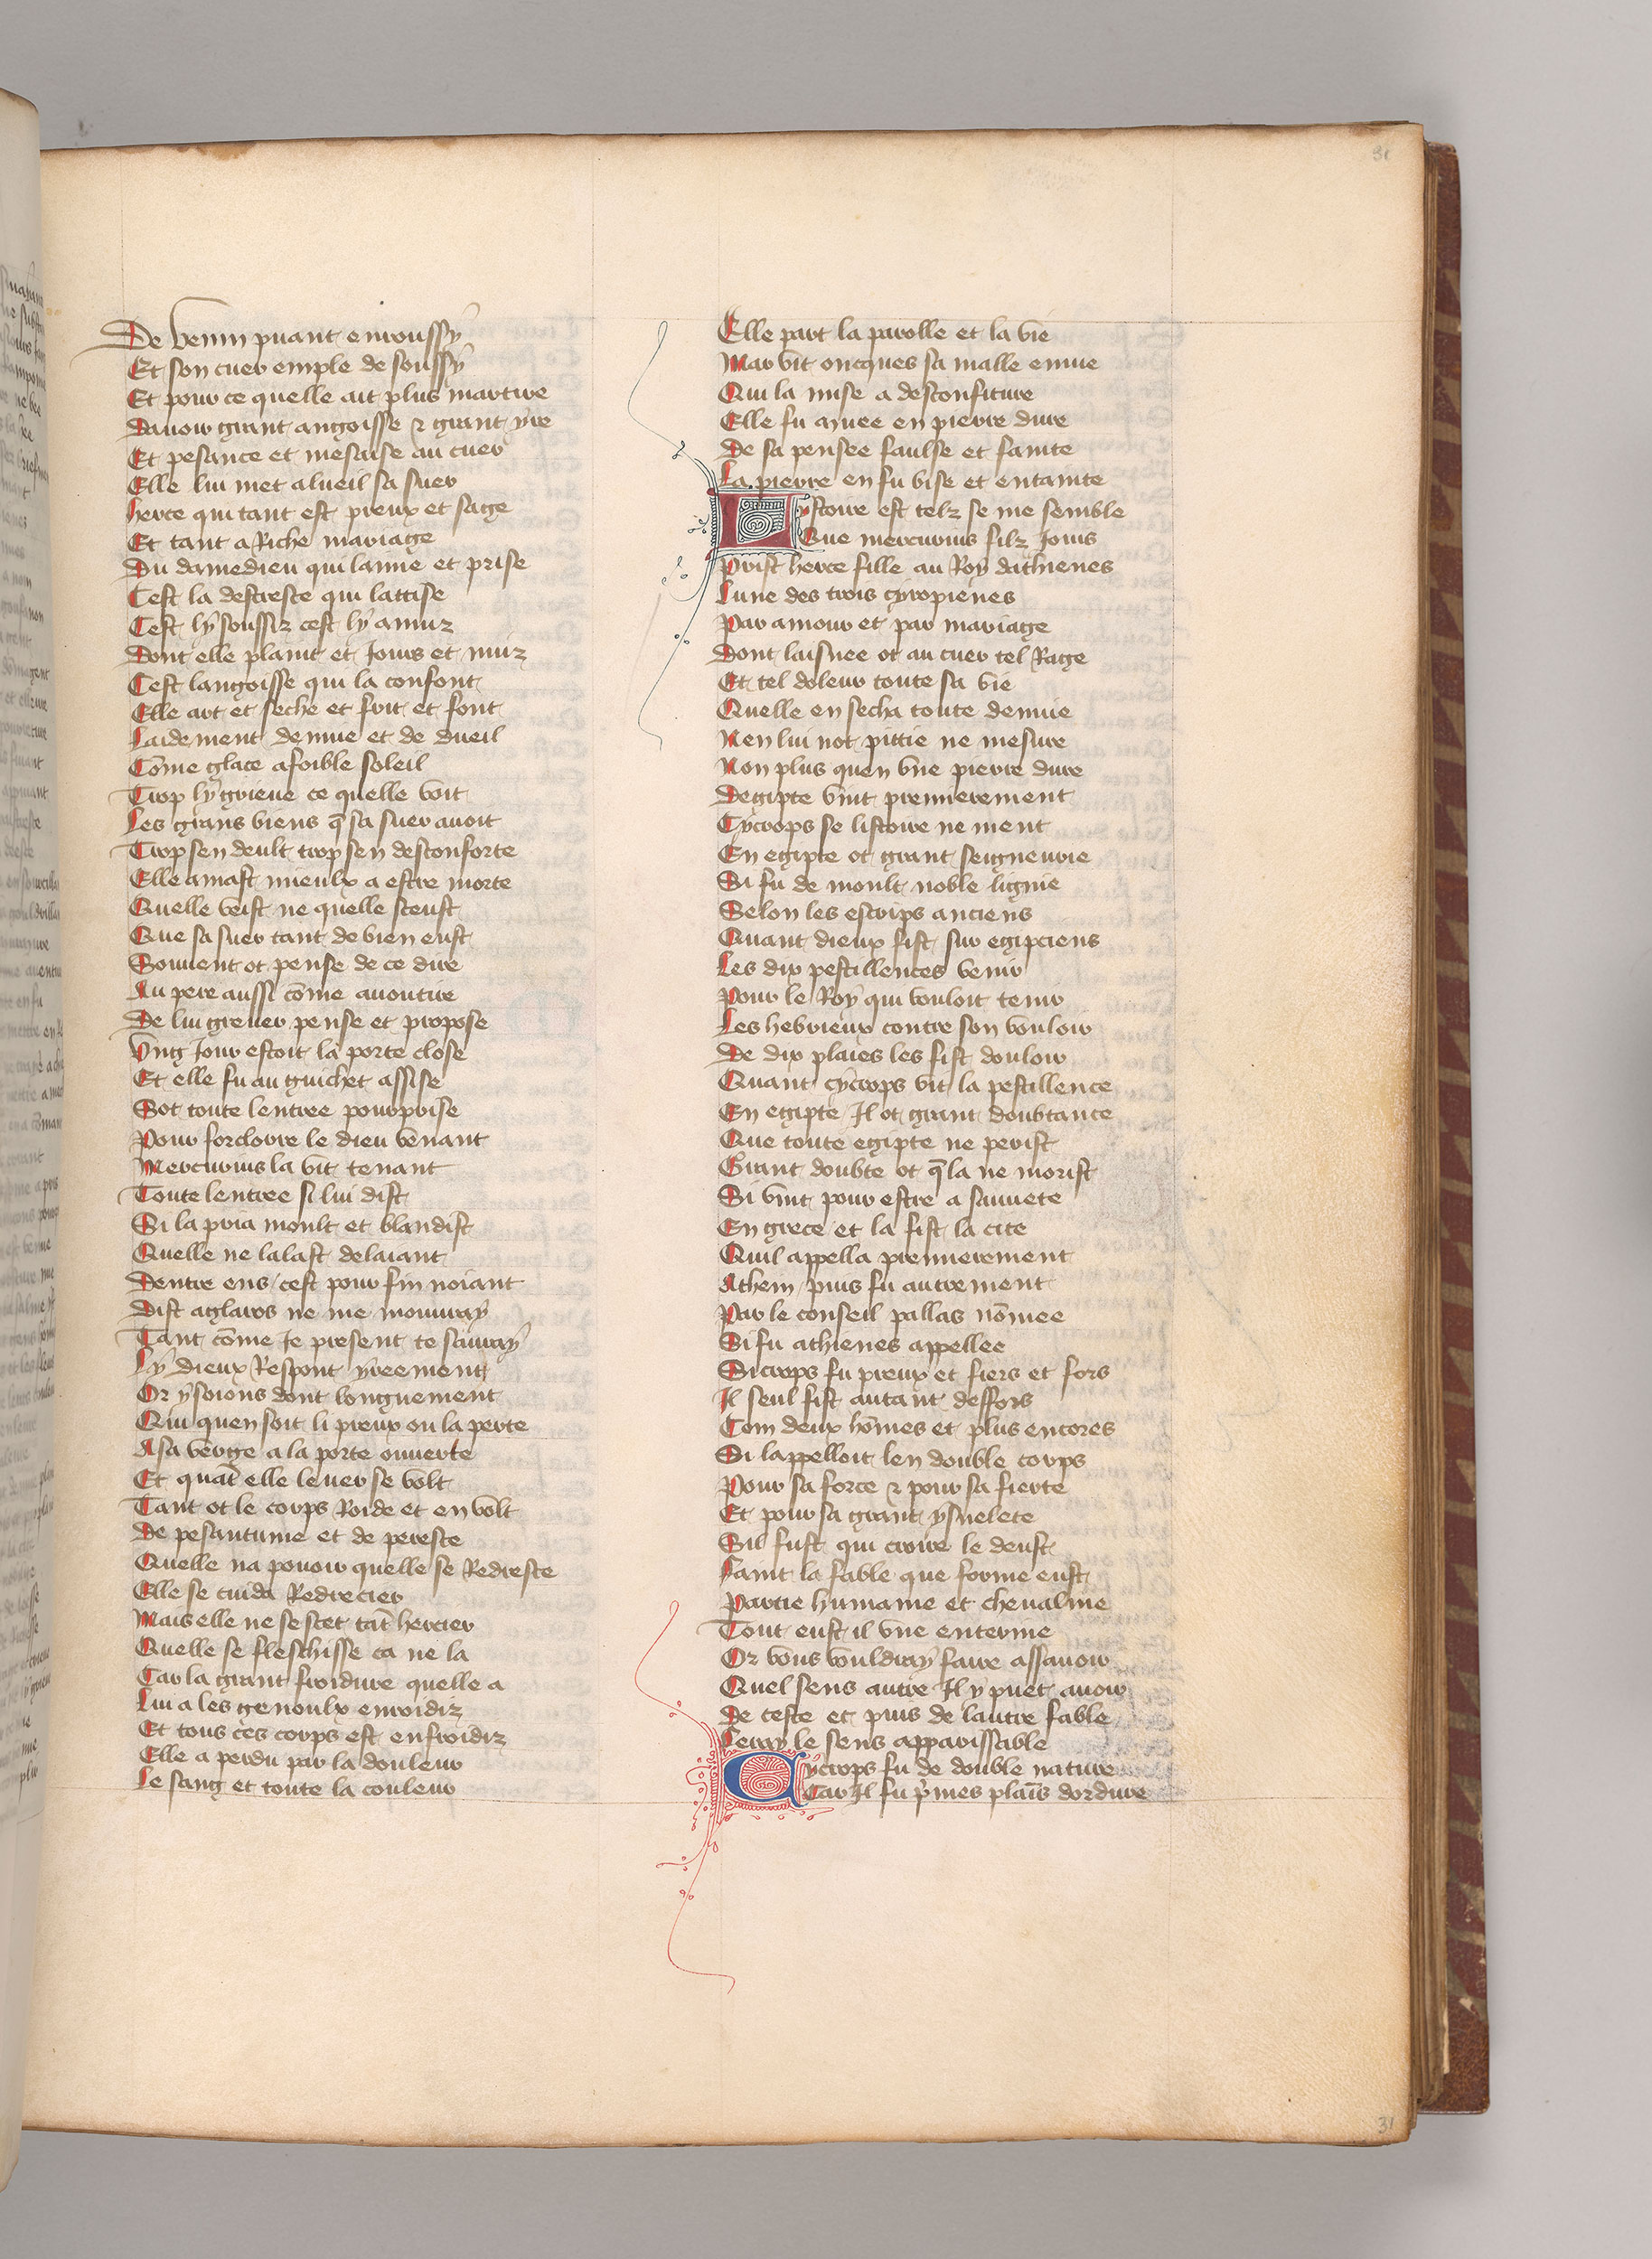 31
De venin puant emoussy
Et son cuer emple de soussy
Et pour ce quelle ait plus martire
Dauoir grant angoisse & grant yre
Et pesance et mesaise au cuer
Elle lui met a lueil sa suer
Herce qui tant est preux et sage
Et tant a Riche mariage
Du damedieu qui laime et prise
Cest la destresce qui lattise
Cest ly soussiz cest ly anuiz
Dont elle plaint et Jours et nuiz
Cest langoisse qui la confont
Elle art et seche et frit et font
Laidement denuie et de dueil
Cōme glace a foible soleil
Trop ly grieue ce quelle voit
Les grans biens q̄ sa suer auoit
Trop sen deult trop sen desconforte
Elle amast mieulx a estre morte
Quelle veist ne quelle sceust
Que sa suer tant de bien eust
Souuent ot pense de ce dire
Au pere aussi cōme auoutire
De lui greuer pense et propose
Vng Jour estoit la porte close
Et elle fu au guichet assise
Sot toute lentree pourprise
Pour forclorre le dieu venant
Mercurius la vit tenant
Toute lentree si lui dist
Si la pria moult et blandist
Quelle ne lalast delaiant
Dentre ens / cest pour fin noiant
Dist aglaros ne me mouuray
Tant cōme Je present te scauray
Ly dieux Respont yreement
Or y soions dont longuement
Qui quen soit li preux ou la perte
A sa verge a la porte ouuerte
Et quāt elle leuer se volt
Tant ot le corps Roide et en volt
De pesantume et de peresce
Quelle na pouoir quelle se Redresce
Elle se cuida Redrecier
Mais elle ne se scet tāt hercier
Quelle se fleschisse ca ne la
Car la grant froidure quelle a
Lui a les genoulx enroidiz
Et tous ces corps est enfroidiz
Elle a perdu par la douleur
Le sang et toute la couleur
Elle part la parolle et la vie
Mar vit oncques sa malle enuie
Qui la mise a desconfiture
Elle fu muee en pierre dure
De sa pensee faulse et fainte
La pierre en fu bise et entainte
Lystoire est telz se me semble
Que mercurius filz Jouis
Prist herce fille au Roy dathienes
Lune des trois cycropienes
Par amour et par mariage
Dont laisnee ot au cuer tel Rage
Et tel doleur toute sa vie
Quelle en secha toute denuie
Nen lui not pittie ne mesure
Non plus quen vne pierre dure
Degipte vint premierement
Cycrops se listoire ne ment
En egipte ot grant seigneurie
Si fu de moult noble lignie
Selon les escrips anciens
Quant dieux fist sur egipciens
Les dix pestillences venir
Pour le Roy qui vouloit tenir
Les hebrieux contre son vouloir
De dix plaies les fist douloir
Quant cycrops vit la pestillence
En egipte Il ot grant doubtance
Que toute egipte ne perist
Grant doubte ot q̄ la ne morist
Si vint pour estre a sauuete
En grece et la fist la cite
Quil appella premierement
Athein / puis fu autrement
Par le conseil pallas nōmee
Si fu athienes appellee
Sicrops fu preux et fiers et fors
Il seul fist autant deffors
Com deux hōmes et plus encores
Si lappelloit len double corps
Pour sa force & pour sa fierte
Et pour sa grant ysnelete
Sil fust qui croire le deust
Faint la fable que forme eust
Partie humaine et cheualine
Tout eust il vne enterine
Or vous vouldray faire assauoir
Quel sens autre Il y puet auoir
De ceste et puis de lautre fable
Leray le sens apparissable
Cycrops fu de double nature
Car Il fu p̄mes plaīs dordure
31